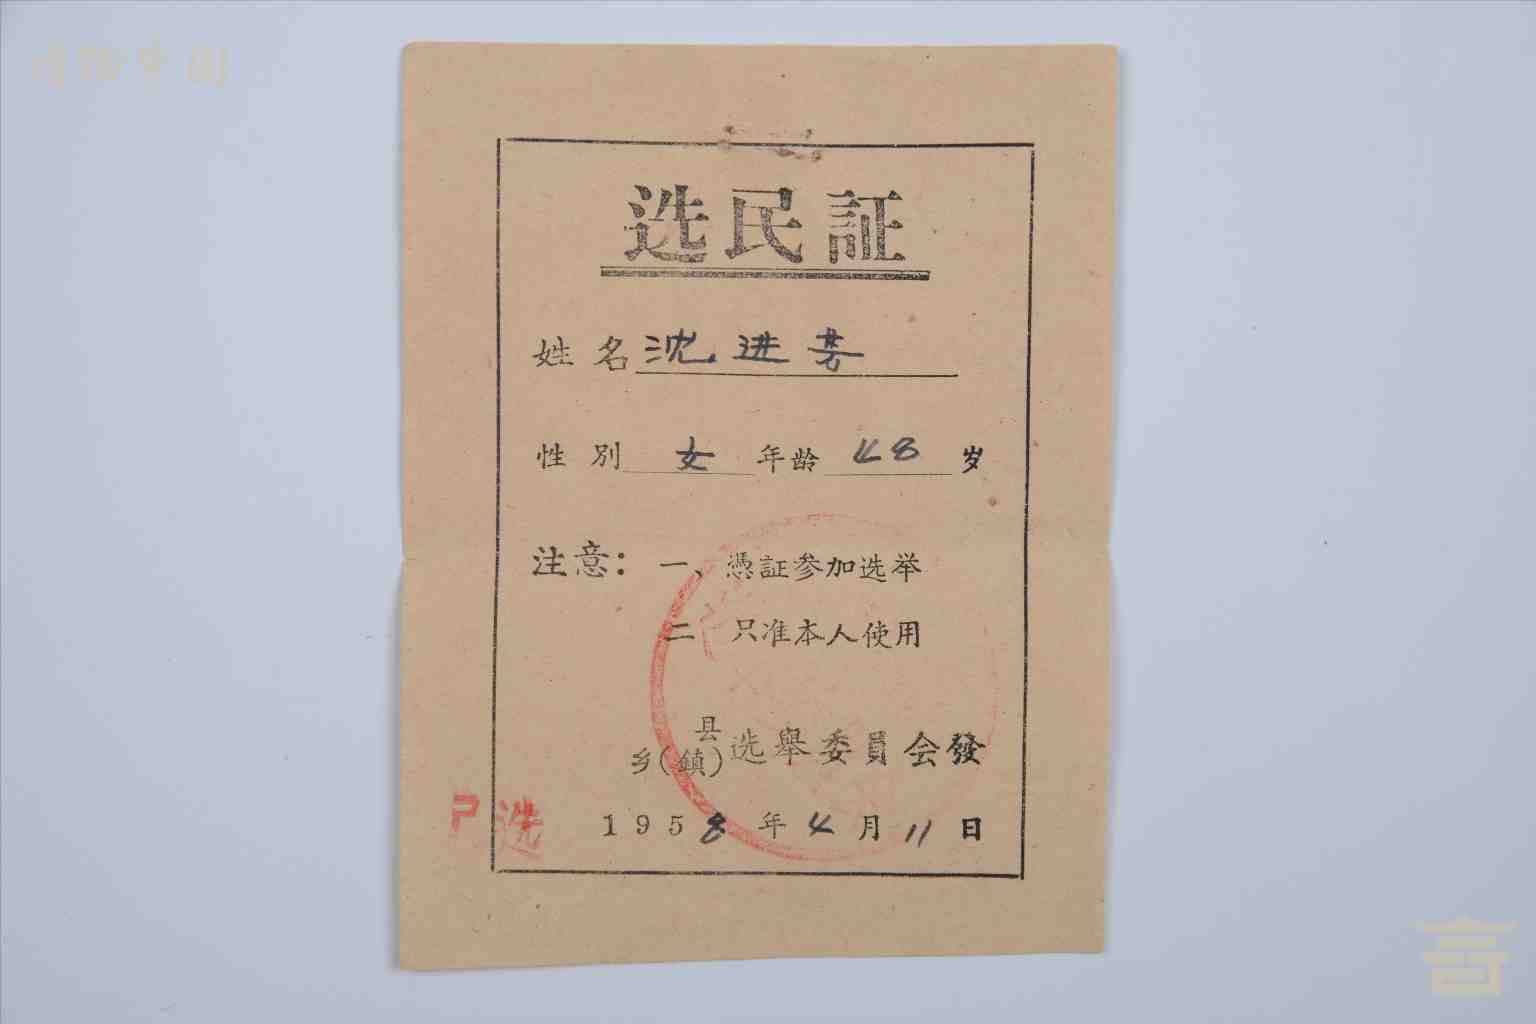 选民証
姓名 沈进芳
性别 女 年龄 48 岁
注意：一、憑証参加选举
二 只准本人使用
县
乡（鎮）选舉委員会發
1958年4月11日
选